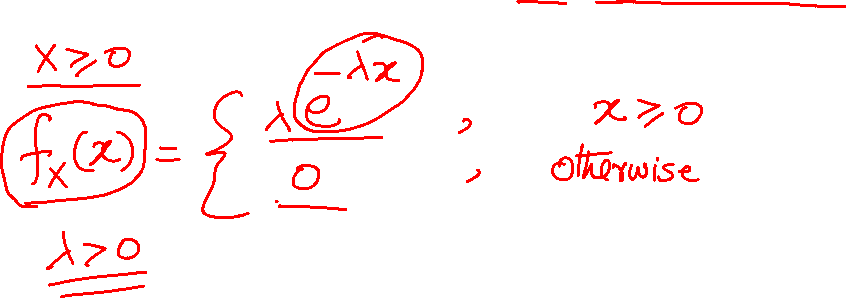 X ≥ 0
f_X(x) = { λe^{-λx} , x ≥ 0
0 , otherwise
λ > 0